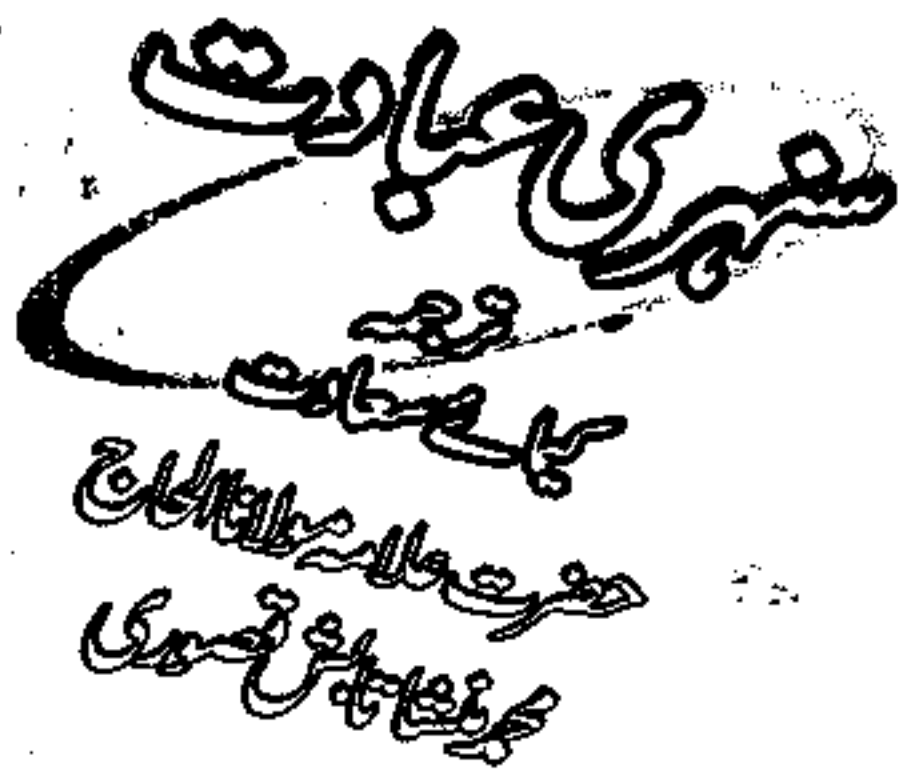 سنہری عبادت
ترجمہ
کیمیائے سعادت
حضرت علامہ مولانا الحاج
محمد منشا تابش قصوری